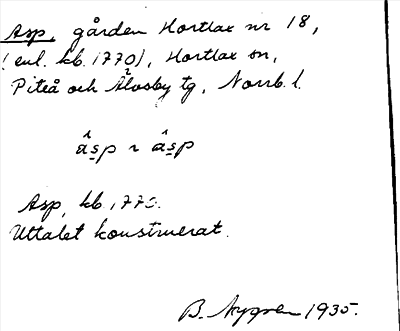 Asp, gården Hortlax nr 18,
(enl. kb. 1770), Hortlax sn,
Piteå och Älvsby tg, Norrb. l.
âsp ~ âsp
Asp, kb 1770.
Uttalet konstruerat.
B. Nygren 1935.